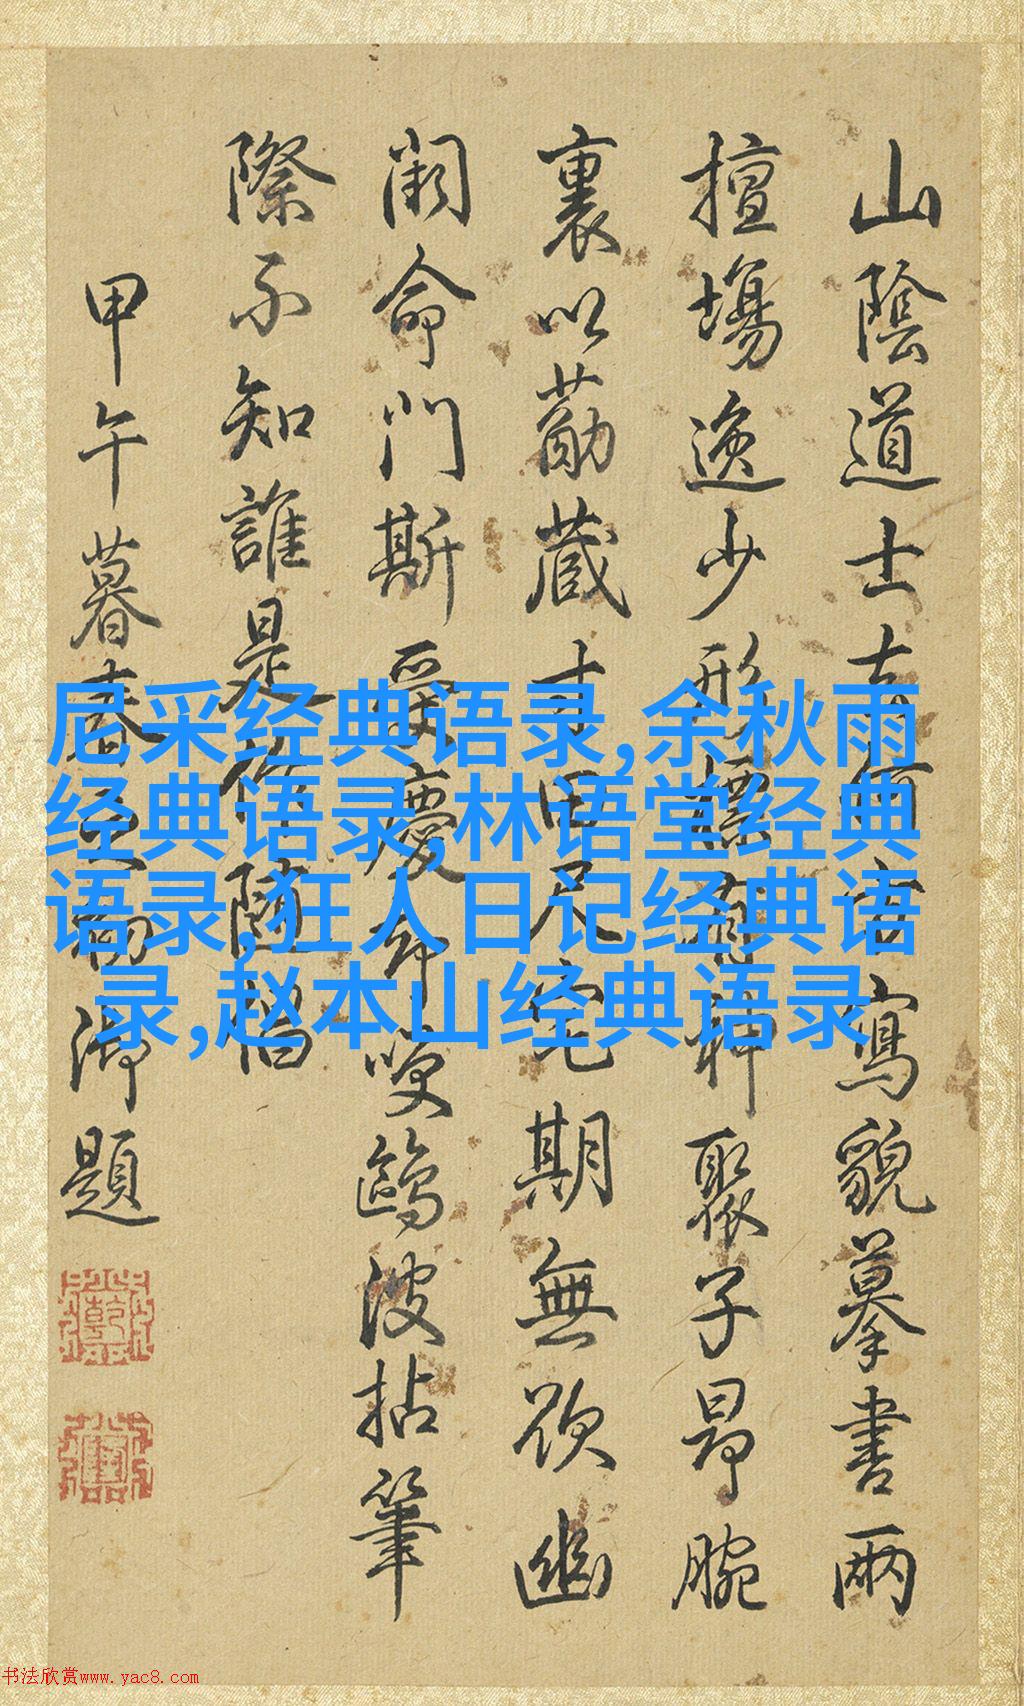 山陰道士去何寫貌摹書兩
擅場逸少形神聚子昂腕
裏以勗藏寸田尺宅期無欲幽
命門斯慶鷗波拈筆
際不知誰是
甲午暮春之初御題
尼采经典语录,余秋雨
经典语录,林语堂经典
语录,狂人日记经典语
录,赵本山经典语录
书法欣赏www.yac8.com